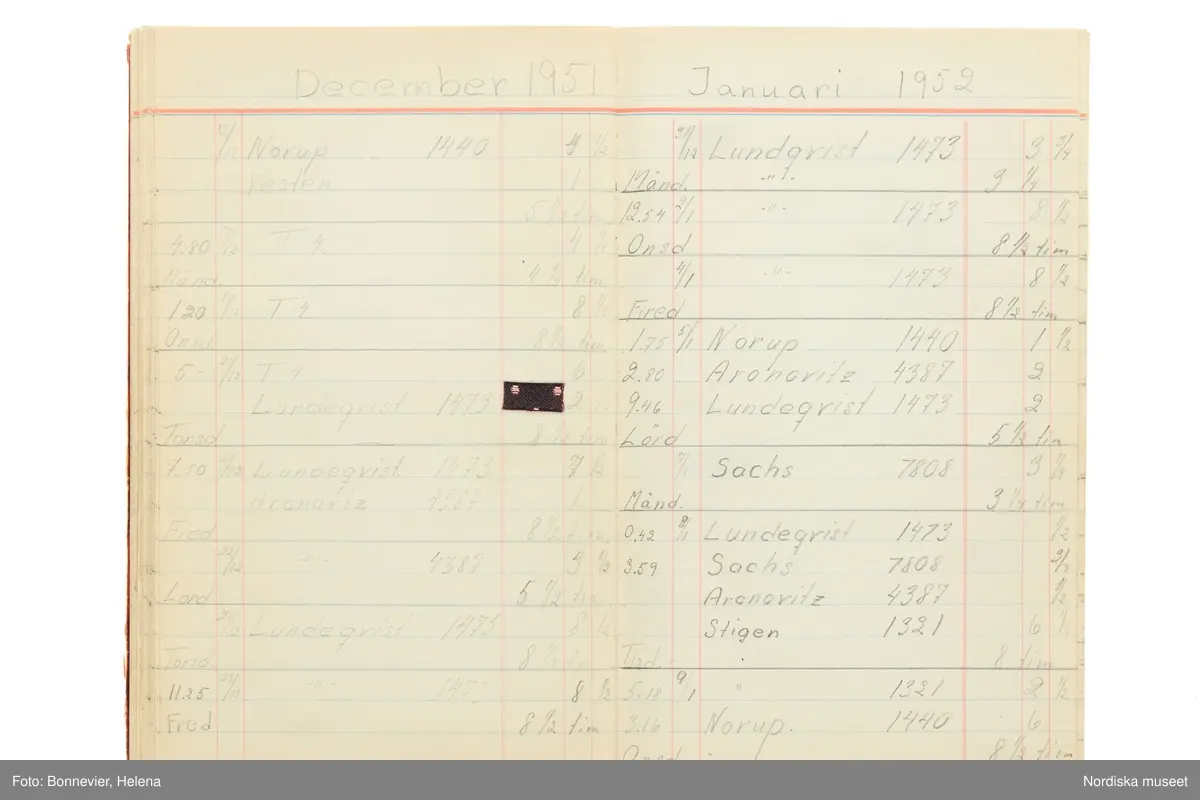 December 1951
Norup 1440 4 1/2
Vesten 1
5 1/2 tim
4.80 T 4 4
Månd. 4 1/2 tim
1.20 T 4 8 1/2
Onsd 8 1/2 tim
5.- T 4 6
Lundeqvist 1473 2
Torsd 8 1/2 tim
7.50 Lundeqvist 1473 7 1/2
Aronoviz 4387 1
Fred 8 1/2 tim
-"- 4387 1/2
Lörd 5 1/2 tim
Lundeqvist 1473 8 1/2
Torsd 8 1/2 tim
11.25 -"- 1473 8 1/2
Fred 8 1/2 tim
Januari 1952
31/12 Lundqvist 1473 3 3/4
Månd. -"- 3
12.54 2/1 -"- 1473 8 1/2
Onsd 8 1/2 tim
4/1 -"- 1473 8 1/2
Fred 8 1/2 tim
1.75 5/1 Norup 1440 1 1/2
2.80 Aronovitz 4387 2
9.46 Lundeqvist 1473 2
Lörd 5 1/2 tim
7/1 Sachs 7808 3 1/4
Månd. 3 1/4 tim
0.42 8/1 Lundeqvist 1473 1/2
3.59 Sachs 7808 3/4
Aronovitz 4387 1/2
Stigen 1321 6
Tisd. 8 tim
5.18 9/1 " 1321 2 1/2
3.16 Norup. 1440 6
Onsd. 8 1/2 tim
Foto: Bonnevier, Helena
Nordiska museet